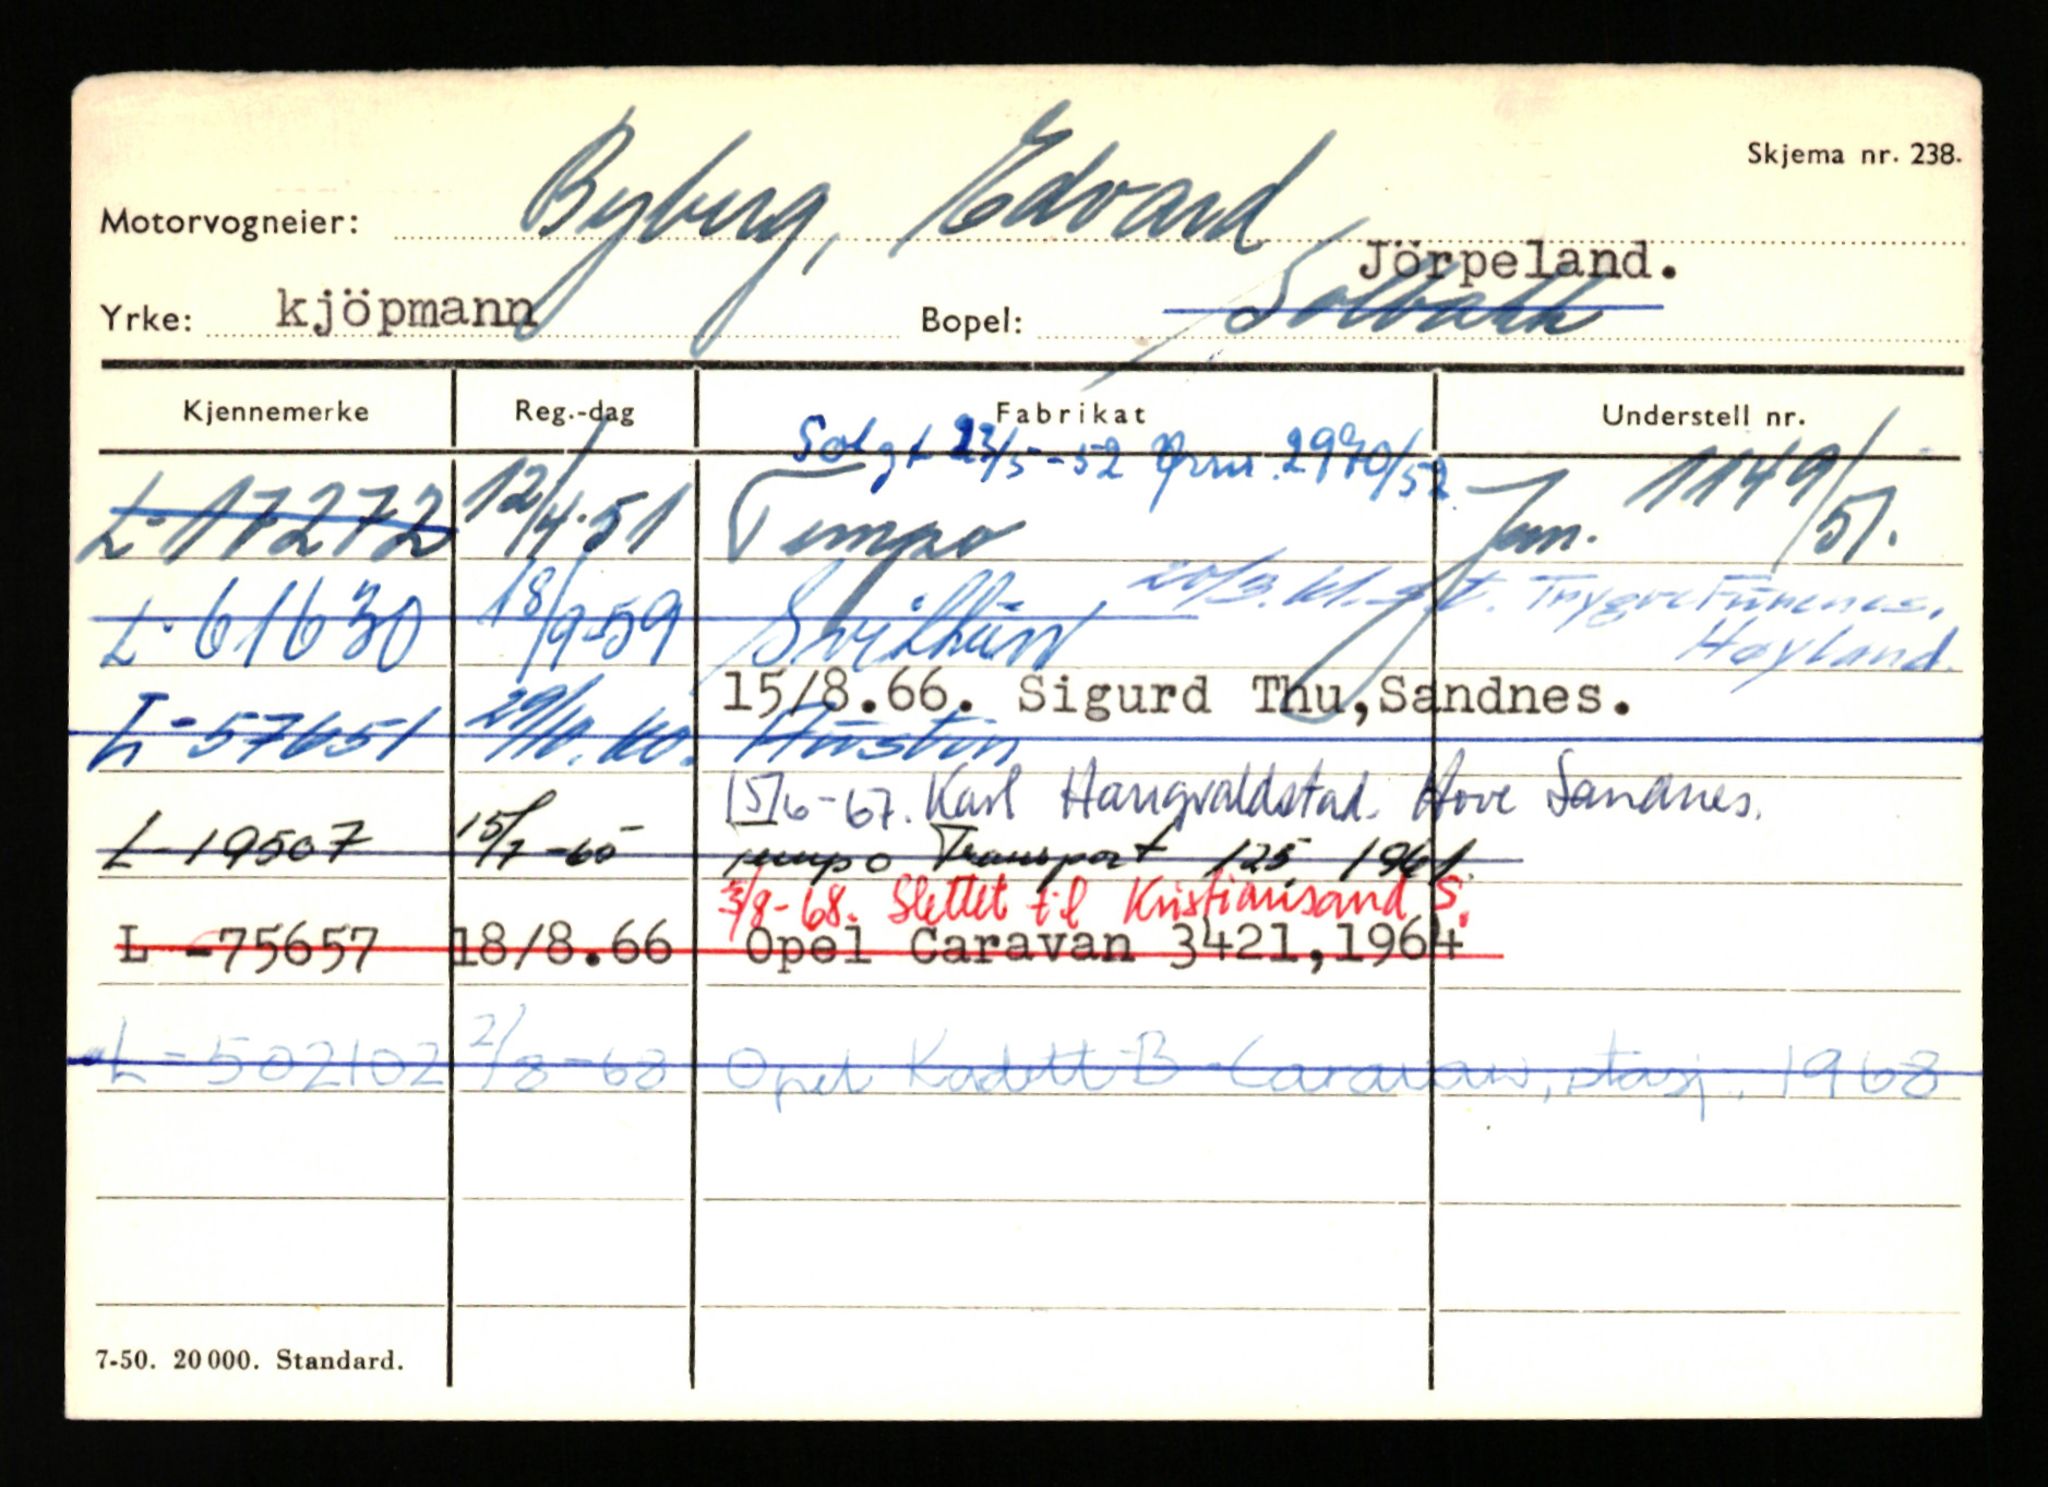 Skjema nr. 238.
Motorvogneier: Byberg, Edvard
Jörpeland.
Yrke: kjöpmann Bopel: Solbakk
Kjennemerke Reg.-dag Fabrikat Understell nr.
Solgt 23/5-52 2970/52
L-17272 12/4-51 Tempo Jnr. 1149/51.
20/3.61. Trygve
L-61630 18/9-59 Høyland.
15/8.66. Sigurd Thu,Sandnes.
L-57651 29/10.60. Austin
15/6-67. Karl Haugvaldstad. Hove Sandnes.
L-19507 15/7-65 Tempo Transport 125, 1961
3/8-68. Slettet til Kristiansand S.
L -75657 18/8.66 Opel Caravan 3421,1964
L-502102 2/8-68 Opel Kadett-B-Caravan, stasj. 1968
7-50. 20 000. Standard.